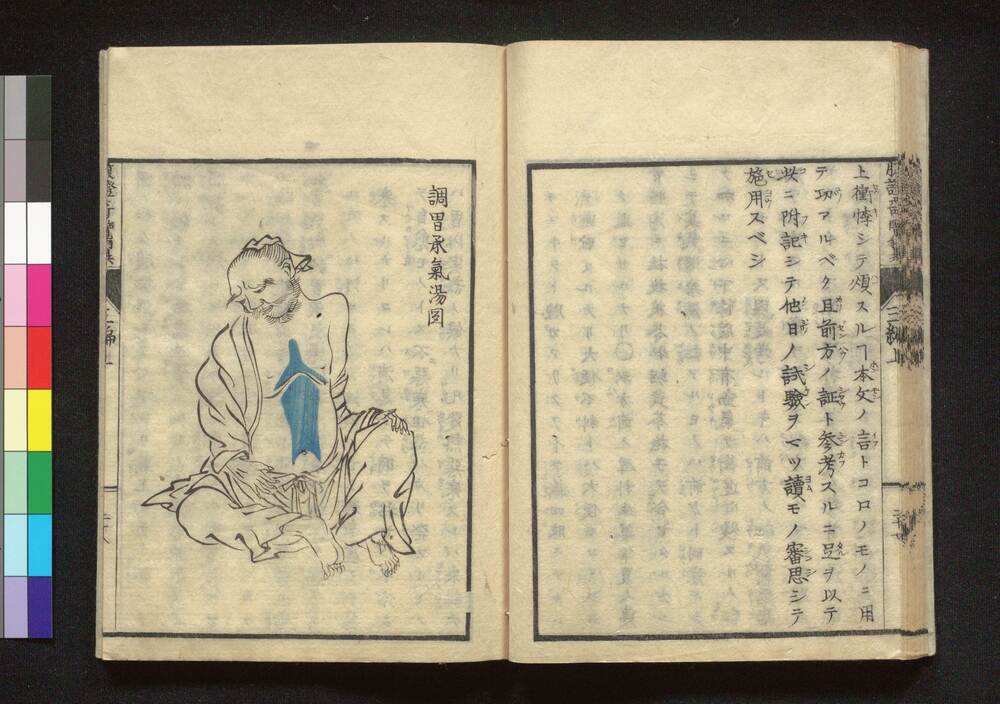 上衝悸シテ煩スルヿ本文ノ言トコロノモノニ用
テ功アルベク且前方ノ証ト参考スルニ足ヲ以テ
此ニ附記シテ他日ノ試驗ヲマツ讀モノ審思シテ
施用スベシ
三編上
調胃承氣湯図